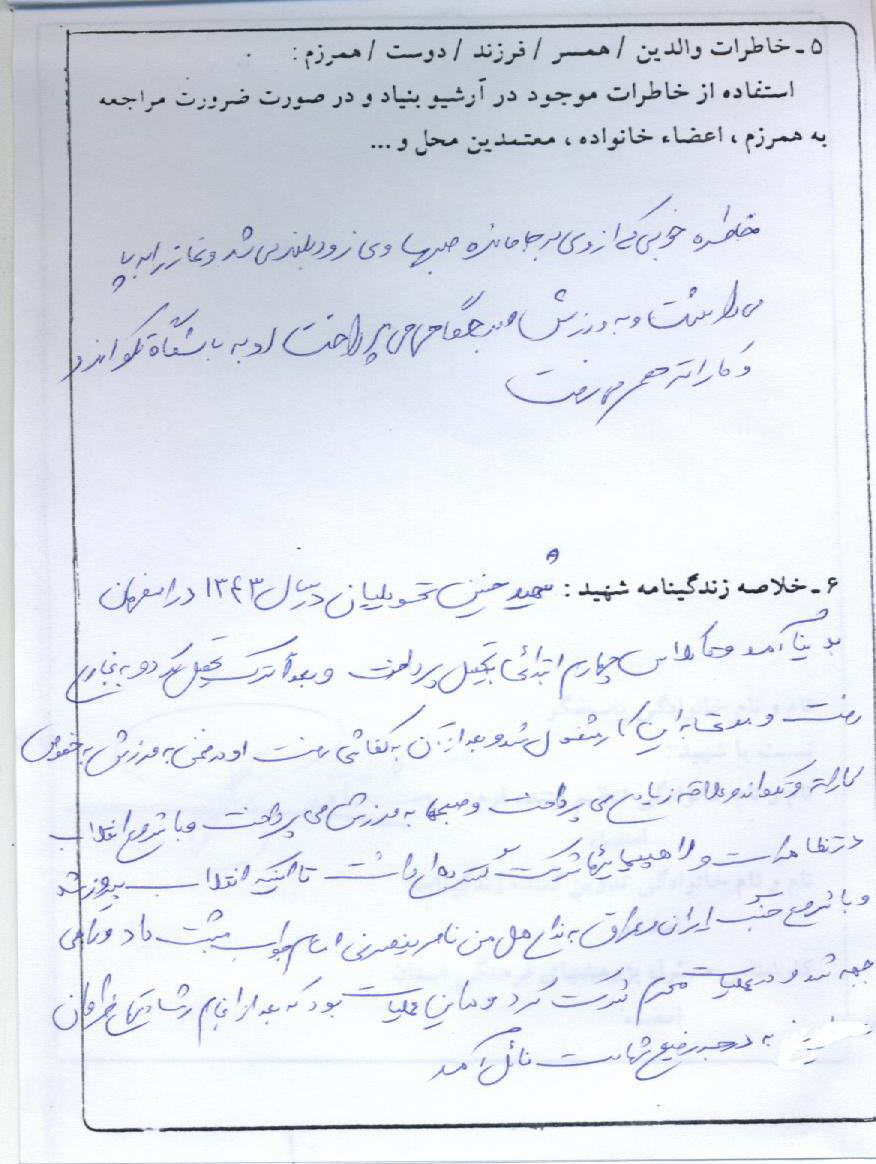 ۵ ـ خاطرات والدین / همسر / فرزند / دوست / همرزم :
استفاده از خاطرات موجود در آرشیو بنیاد و در صورت ضرورت مراجعه
به همرزم ، اعضاء خانواده ، معتمدین محل و ...
خاطره خوبی که از وی بر جا مانده صبحها وی زود بلند می شد و نماز را به پا
می داشت و به ورزش صبحگاهی می پرداخت او به باشگاه تکواندو
و کاراته هم می رفت
۶ ـ خلاصه زندگینامه شهید : شهید حسین تحویلیان در سال ۱۳۴۳ در اصفهان
بدنیا آمد و تا کلاس چهارم ابتدائی به تحصیل پرداخت و بعد از آن ترک تحصیل کرد و به نجاری
رفت و مدتی به این کار مشغول شد و بعد از آن به کفاشی رفت او در ضمن به ورزش به خصوص
کاراته و تکواندو علاقه زیادی می پرداخت و صبحها به ورزش می پرداخت و با شروع انقلاب
در تظاهرات و راهپیمائیها شرکت گسترده ای داشت تا اینکه انقلاب پیروز شد
و با شروع جنگ ایران و عراق به ندای هل من ناصر ینصرنی امام جواب مثبت داد و راهی
جبهه شد و در عملیات محرم شرکت کرد و در این عملیات بود که بعد از انجام رشادتهای فراوان
به درجه رفیع شهادت نائل آمد